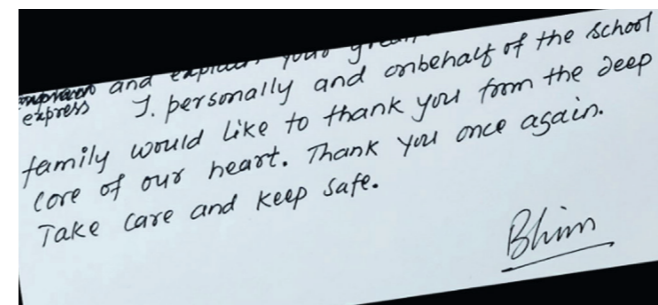 and explain your
express I. personally and onbehalf of the school
family would like to thank you from the deep
core of our heart. Thank you once again.
Take care and keep safe.
Bhim